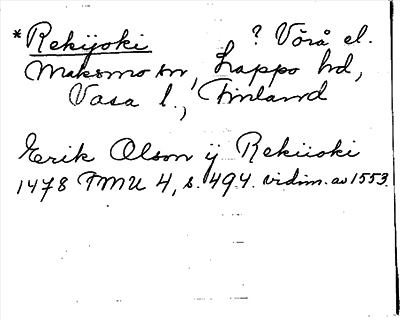 *Rekijoki ? Vörå el.
Maksmo sn, Lappo hd,
Vasa l., Finland
Erik Olson ÿ Rekiioki
1478 FMU 4, s. 494. vidim. av 1553.